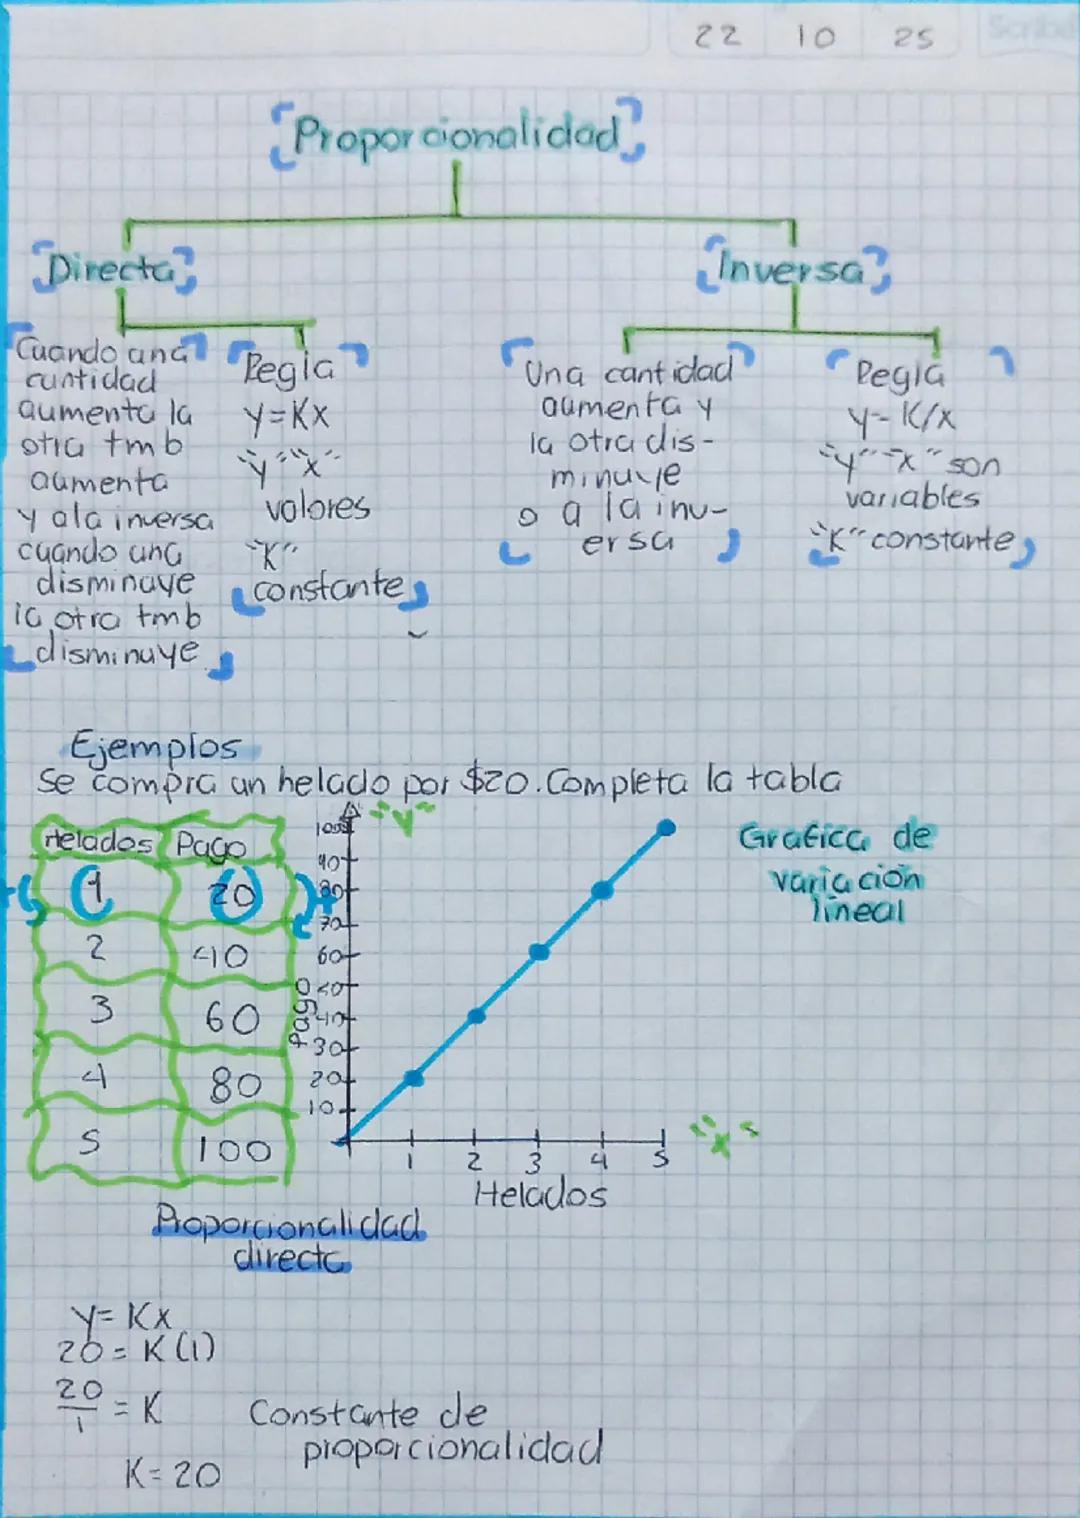 22 10 25
Scribe
Proporcionalidad
Directa
Inversa
Cuando una
cantidad
aumenta la
otra tmb
aumenta
y a la inversa
cuando una
disminuye
la otra tmb
disminuye
Regla
y=Kx
"y" "x"
valores
"K"
constante
Una cantidad
aumenta y
la otra dis-
minuye
o a la inv-
ersa
Regla
y=K/x
"y" "x" son
variables
"K" constante
Ejemplos
Se compra un helado por $20. Completa la tabla
Helados Pago
1 20
2 40
3 60
4 80
5 100
"y"
100
90
80
70
60
50
40
30
20
10
Pago
1 2 3 4 5
"x"
Helados
Grafica de
variación
lineal
Proporcionalidad
directa
y=Kx
20=K(1)
20/1=K
K=20
Constante de
proporcionalidad